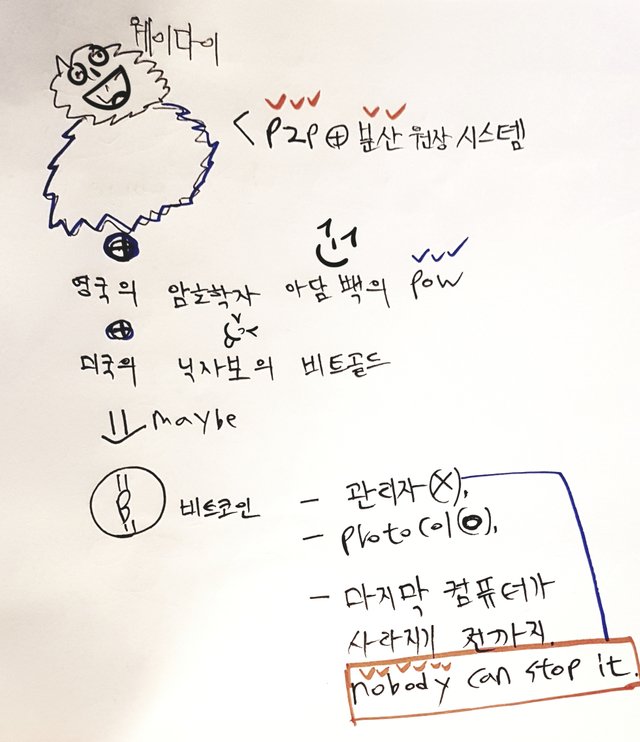 웨이다이
< P2P ⊕ 분산 원장 시스템
⊕
영국의 암호학자 아담 백의 POW
⊕
미국의 닉자보의 비트골드
⇓ maybe
B 비트코인
- 관리자(X),
- photocol(O),
- 마지막 컴퓨터가
사라지기 전까지.
nobody can stop it.